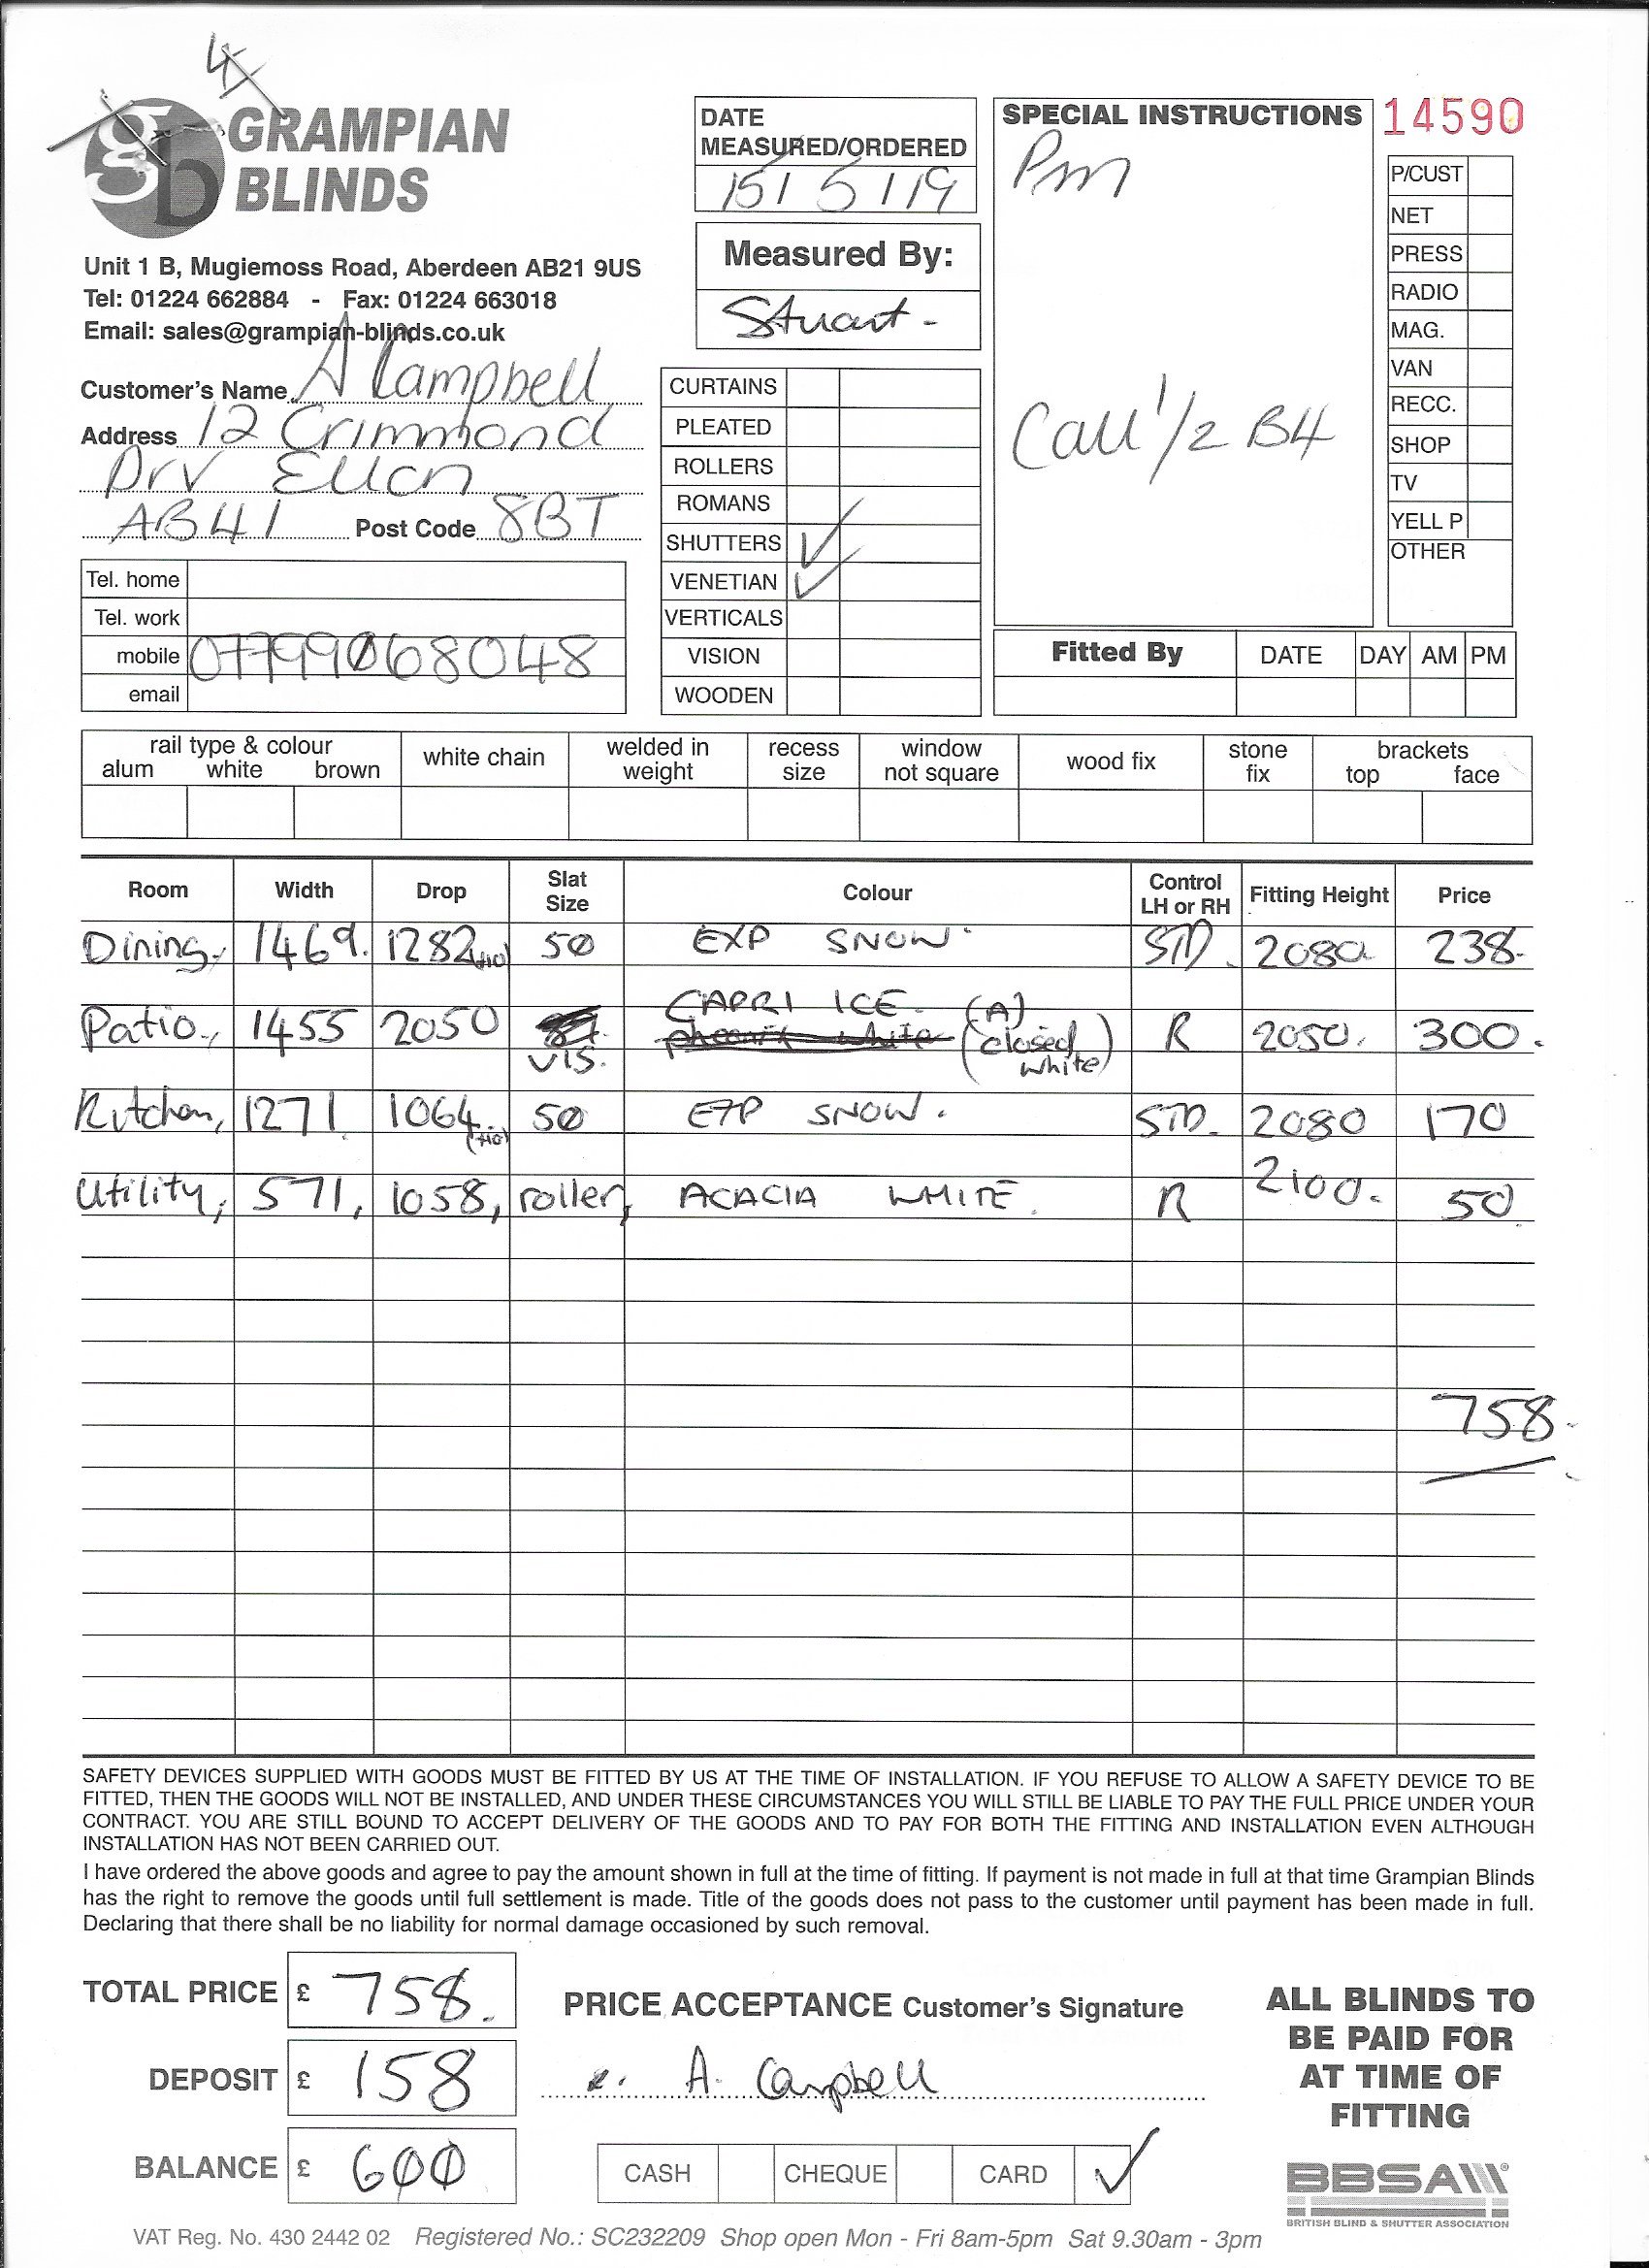 4
GRAMPIAN
BLINDS
Unit 1 B, Mugiemoss Road, Aberdeen AB21 9US
Tel: 01224 662884 - Fax: 01224 663018
Email: sales@grampian-blinds.co.uk
Customer's Name A Campbell
Address 12 Crimmond
Drv Ellon
AB41 Post Code 8BT
Tel. home
Tel. work
mobile 07799068048
email
DATE
MEASURED/ORDERED
15/5/19
Measured By:
Stuart -
CURTAINS
PLEATED
ROLLERS
ROMANS
SHUTTERS ✓
VENETIAN ✓
VERTICALS
VISION
WOODEN
SPECIAL INSTRUCTIONS
Pm
Call 1/2 B4
14590
P/CUST
NET
PRESS
RADIO
MAG.
VAN
RECC.
SHOP
TV
YELL P
OTHER
Fitted By DATE DAY AM PM
rail type & colour
alum white brown
white chain
welded in
weight
recess
size
window
not square
wood fix
stone
fix
brackets
top face
Room Width Drop Slat Size Colour Control LH or RH Fitting Height Price
Dining, 1469. 1282 (+10) 50 EXP SNOW STD. 2080 238.
Patio, 1455 2050 VIS. CAPRI ICE. (A) (closed white) R 2050. 300.
Kitchen, 1271 1064 (+10) 50 EXP SNOW. STD. 2080 170
Utility, 571, 1058, roller, ACACIA WHITE. R 2100. 50
758.
SAFETY DEVICES SUPPLIED WITH GOODS MUST BE FITTED BY US AT THE TIME OF INSTALLATION. IF YOU REFUSE TO ALLOW A SAFETY DEVICE TO BE
FITTED, THEN THE GOODS WILL NOT BE INSTALLED, AND UNDER THESE CIRCUMSTANCES YOU WILL STILL BE LIABLE TO PAY THE FULL PRICE UNDER YOUR
CONTRACT. YOU ARE STILL BOUND TO ACCEPT DELIVERY OF THE GOODS AND TO PAY FOR BOTH THE FITTING AND INSTALLATION EVEN ALTHOUGH
INSTALLATION HAS NOT BEEN CARRIED OUT.
I have ordered the above goods and agree to pay the amount shown in full at the time of fitting. If payment is not made in full at that time Grampian Blinds
has the right to remove the goods until full settlement is made. Title of the goods does not pass to the customer until payment has been made in full.
Declaring that there shall be no liability for normal damage occasioned by such removal.
TOTAL PRICE £ 758.
DEPOSIT £ 158
BALANCE £ 600
PRICE ACCEPTANCE Customer's Signature
A. Campbell
CASH CHEQUE CARD ✓
ALL BLINDS TO
BE PAID FOR
AT TIME OF
FITTING
BBSA
BRITISH BLIND & SHUTTER ASSOCIATION
VAT Reg. No. 430 2442 02 Registered No.: SC232209 Shop open Mon - Fri 8am-5pm Sat 9.30am - 3pm